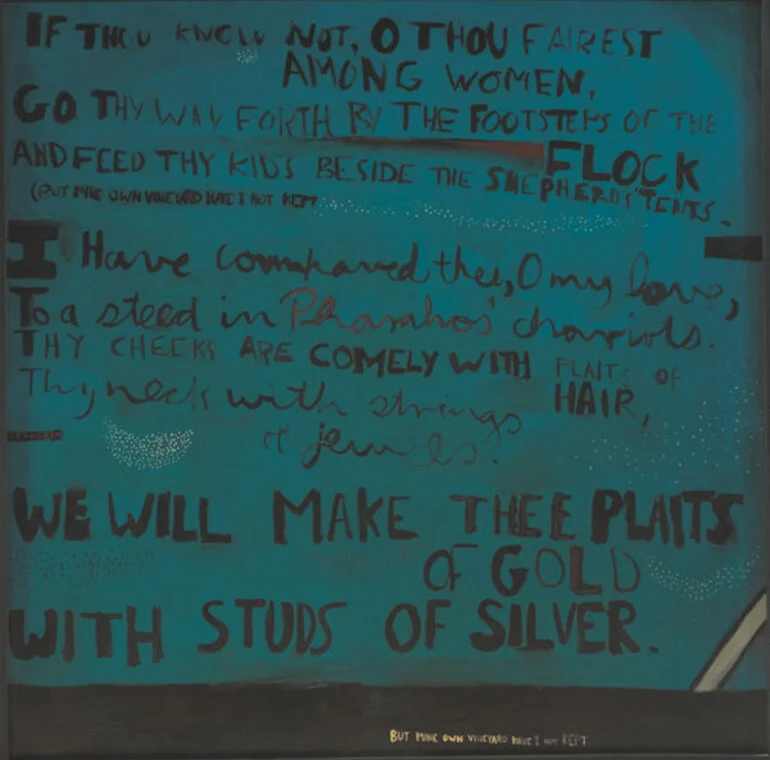 IF THOU KNOW NOT, O THOU FAIREST
AMONG WOMEN,
GO THY WAY FORTH BY THE FOOTSTEPS OF THE
FLOCK
AND FEED THY KIDS BESIDE THE SHEPHERDS' TENTS.
(BUT MINE OWN VINEYARD HAVE I NOT KEPT
I Have compared thee, O my love,
To a steed in Pharahos' chariots.
THY CHEEKS ARE COMELY WITH PLAITS OF
HAIR,
Thy neck with strings
of jewels.
WE WILL MAKE THEE PLAITS
OF GOLD
WITH STUDS OF SILVER.
BUT MINE OWN VINEYARD HAVE I NOT KEPT